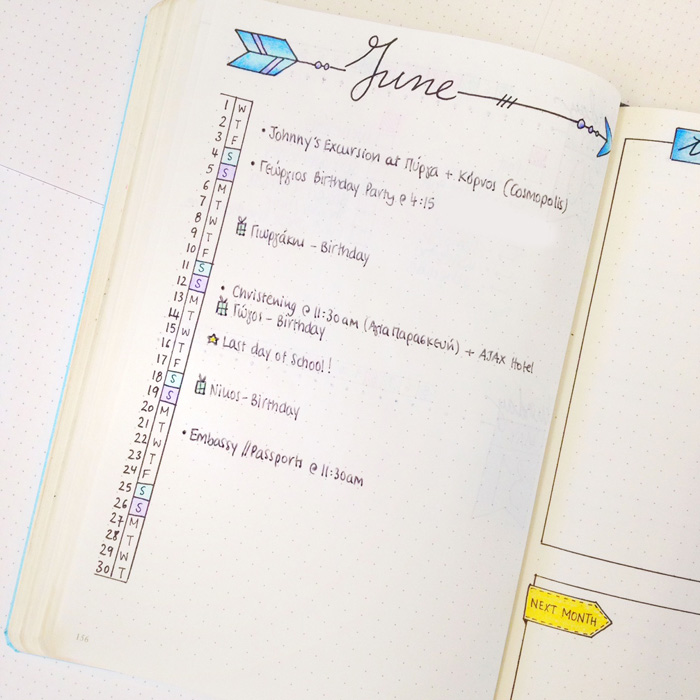 June
1 W
2 T • Johnny's Excursion at Πύργα + Κόρνος (Cosmopolis)
3 F
4 S • Γεώργιος Birthday Party @ 4:15
5 S
6 M
7 T
8 W Γιωργάκης - Birthday
9 T
10 F
11 S
12 S • Christening @ 11:30am (Αγία Παρασκευή) + AJAX Hotel
13 M Γώγος - Birthday
14 T
15 W Last day of School!
16 T
17 F
18 S Νίκος - Birthday
19 S
20 M
21 T • Embassy // Passports @ 11:30am
22 W
23 T
24 F
25 S
26 S
27 M
28 T
29 W
30 T
156
NEXT MONTH